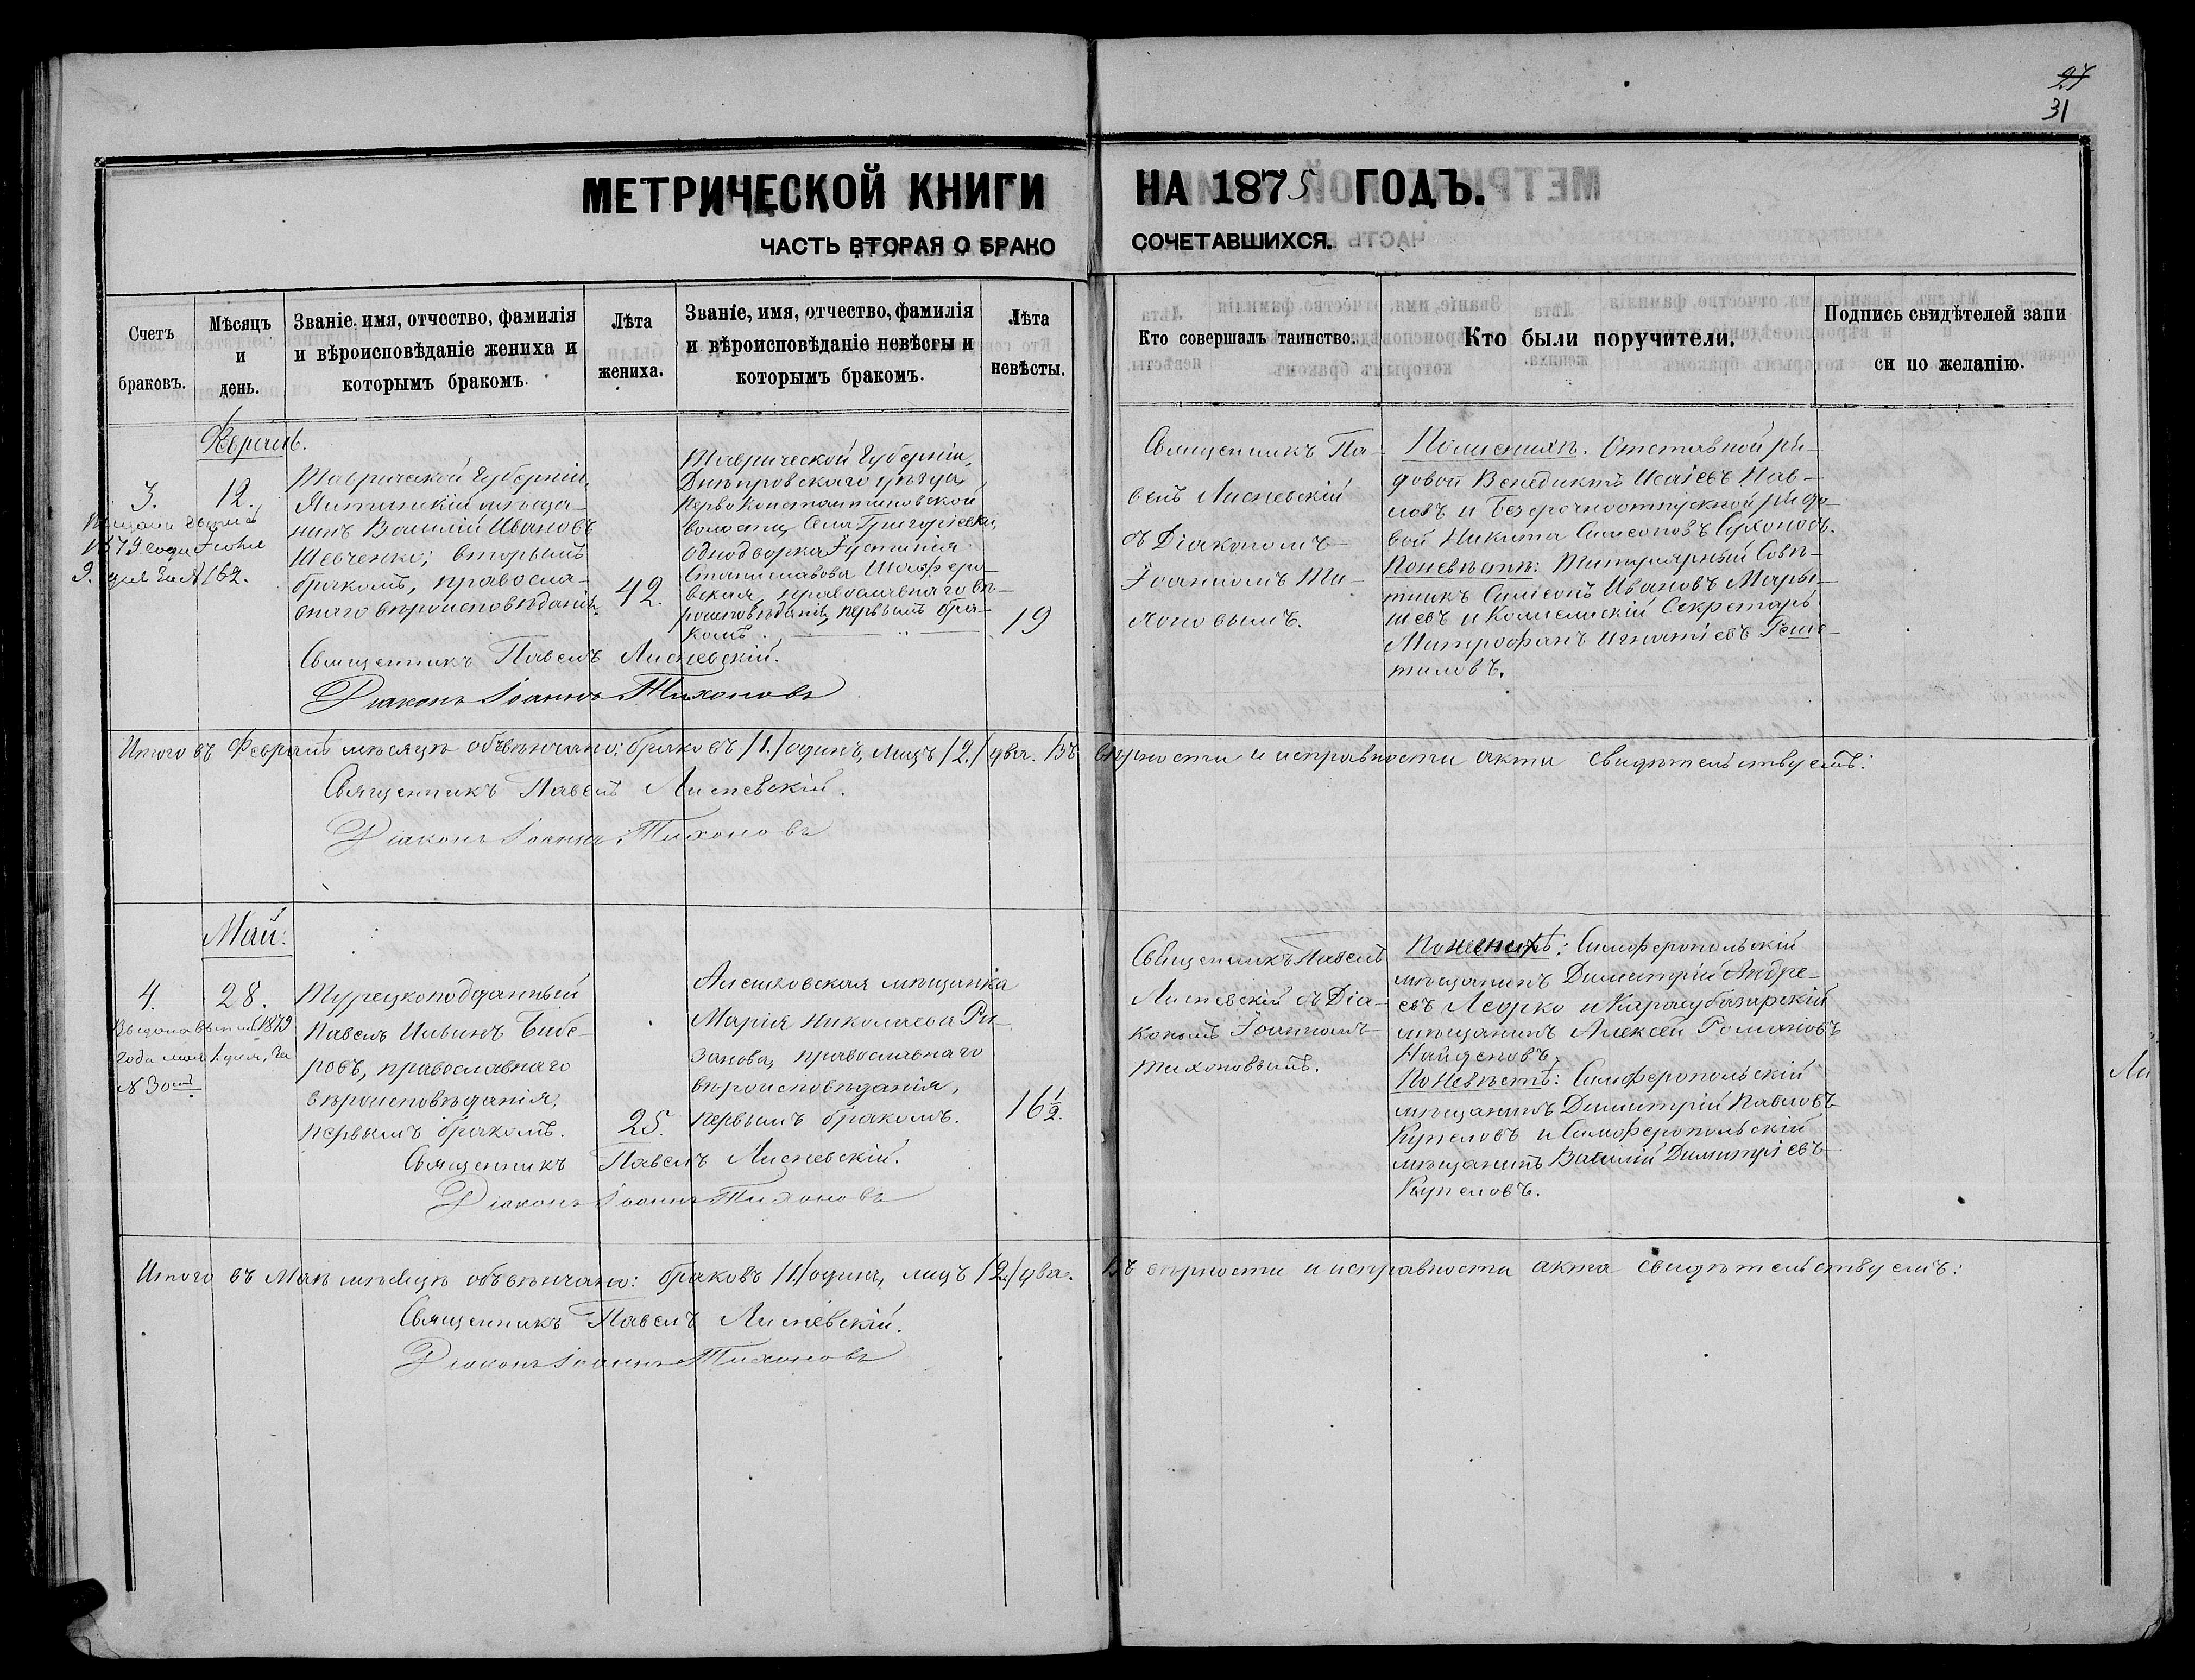 27
31
МЕТРИЧЕСКОЙ КНИГИ НА 1875 ГОДЪ.
ЧАСТЬ ВТОРАЯ О БРАКО СОЧЕТАВШИХСЯ.
Счетъ браковъ.
Мѣсяцъ и день.
Званіе, имя, отчество, фамилія и вѣроисповѣданіе жениха и которымъ бракомъ.
Лѣта жениха.
Званіе, имя, отчество, фамилія и вѣроисповѣданіе невѣсты и которымъ бракомъ.
Лѣта невѣсты.
Кто совершалъ таинство.
Кто были поручители.
Подпись свидѣтелей записи по желанію.
3.
12.
1879 года Іюня
9. дня за № 162.
Таврической Губерніи,
Ялтинскій мѣща-
нинъ Василій Ивановъ
Шевченко; вторымъ
бракомъ, правосла-
внаго вѣроисповѣданія.
42.
Таврической Губерніи,
Днѣпровскаго уѣзда,
Первоконстантиновской
волости, Села Григорьевки,
однодворка Іустинія
Станиславова
православнаго вѣ-
роисповѣданія, первымъ бра-
комъ.
19
Священникъ Па-
велъ Лисневскій
съ Діакономъ
Іоанномъ Ти-
хоновымъ.
По женихѣ. Отставной ря-
довой Венедиктъ Исаіевъ Пав-
ловъ и Безсрочноотпускной рядо-
вой Никита Симеоновъ Сухоносъ.
По невѣстѣ: Титулярный Совѣ-
тникъ Симеонъ Ивановъ Мары-
шевъ и Колежскій Секретарь
Митрофанъ Игнатіевъ Реше-
тиловъ.
Священникъ Павелъ Лисневскій.
Діаконъ Іоаннъ Тихоновъ
Итого въ Февралѣ мѣсяцѣ обвѣнчано: браковъ /1./ одинъ, лицъ /2./ два. Въ вѣрности и исправности акта свидѣтельствуемъ:
Священникъ Павелъ Лисневскій.
Діаконъ Іоаннъ Тихоновъ
Май:
4.
28.
1879
года мая 1 дня, за
№ 30мъ.
Турецкоподданный
Павелъ Ильинъ Бибе-
ровъ, православнаго
вѣроисповѣданія,
первымъ бракомъ.
25.
Алешковская мѣщанка
Марія Николаева Ри-
занова, православнаго
вѣроисповѣданія,
первымъ бракомъ.
16 1/2.
Священникъ Павелъ
Лисневскій съ Діа-
кономъ Іоанномъ
Тихоновымъ.
По женихѣ: Симферопольскій
мѣщанинъ Димитрій Андре-
евъ Леорко и Карасубазарскій
мѣщанинъ Алексѣй Романовъ
Найденовъ,
По Невѣстѣ: Симферопольскій
мѣщанинъ Димитрій Павловъ
Купеловъ и Симферопольскій
мѣщанинъ Василій Димитріевъ
Купеловъ.
Священникъ Павелъ Лисневскій.
Діаконъ Іоаннъ Тихоновъ
Итого въ Маѣ мѣсяцѣ обвѣнчано: браковъ /1./ одинъ, лицъ /2./ два. Въ вѣрности и исправности акта свидѣтельствуемъ:
Священникъ Павелъ Лисневскій.
Діаконъ Іоаннъ Тихоновъ
Ли